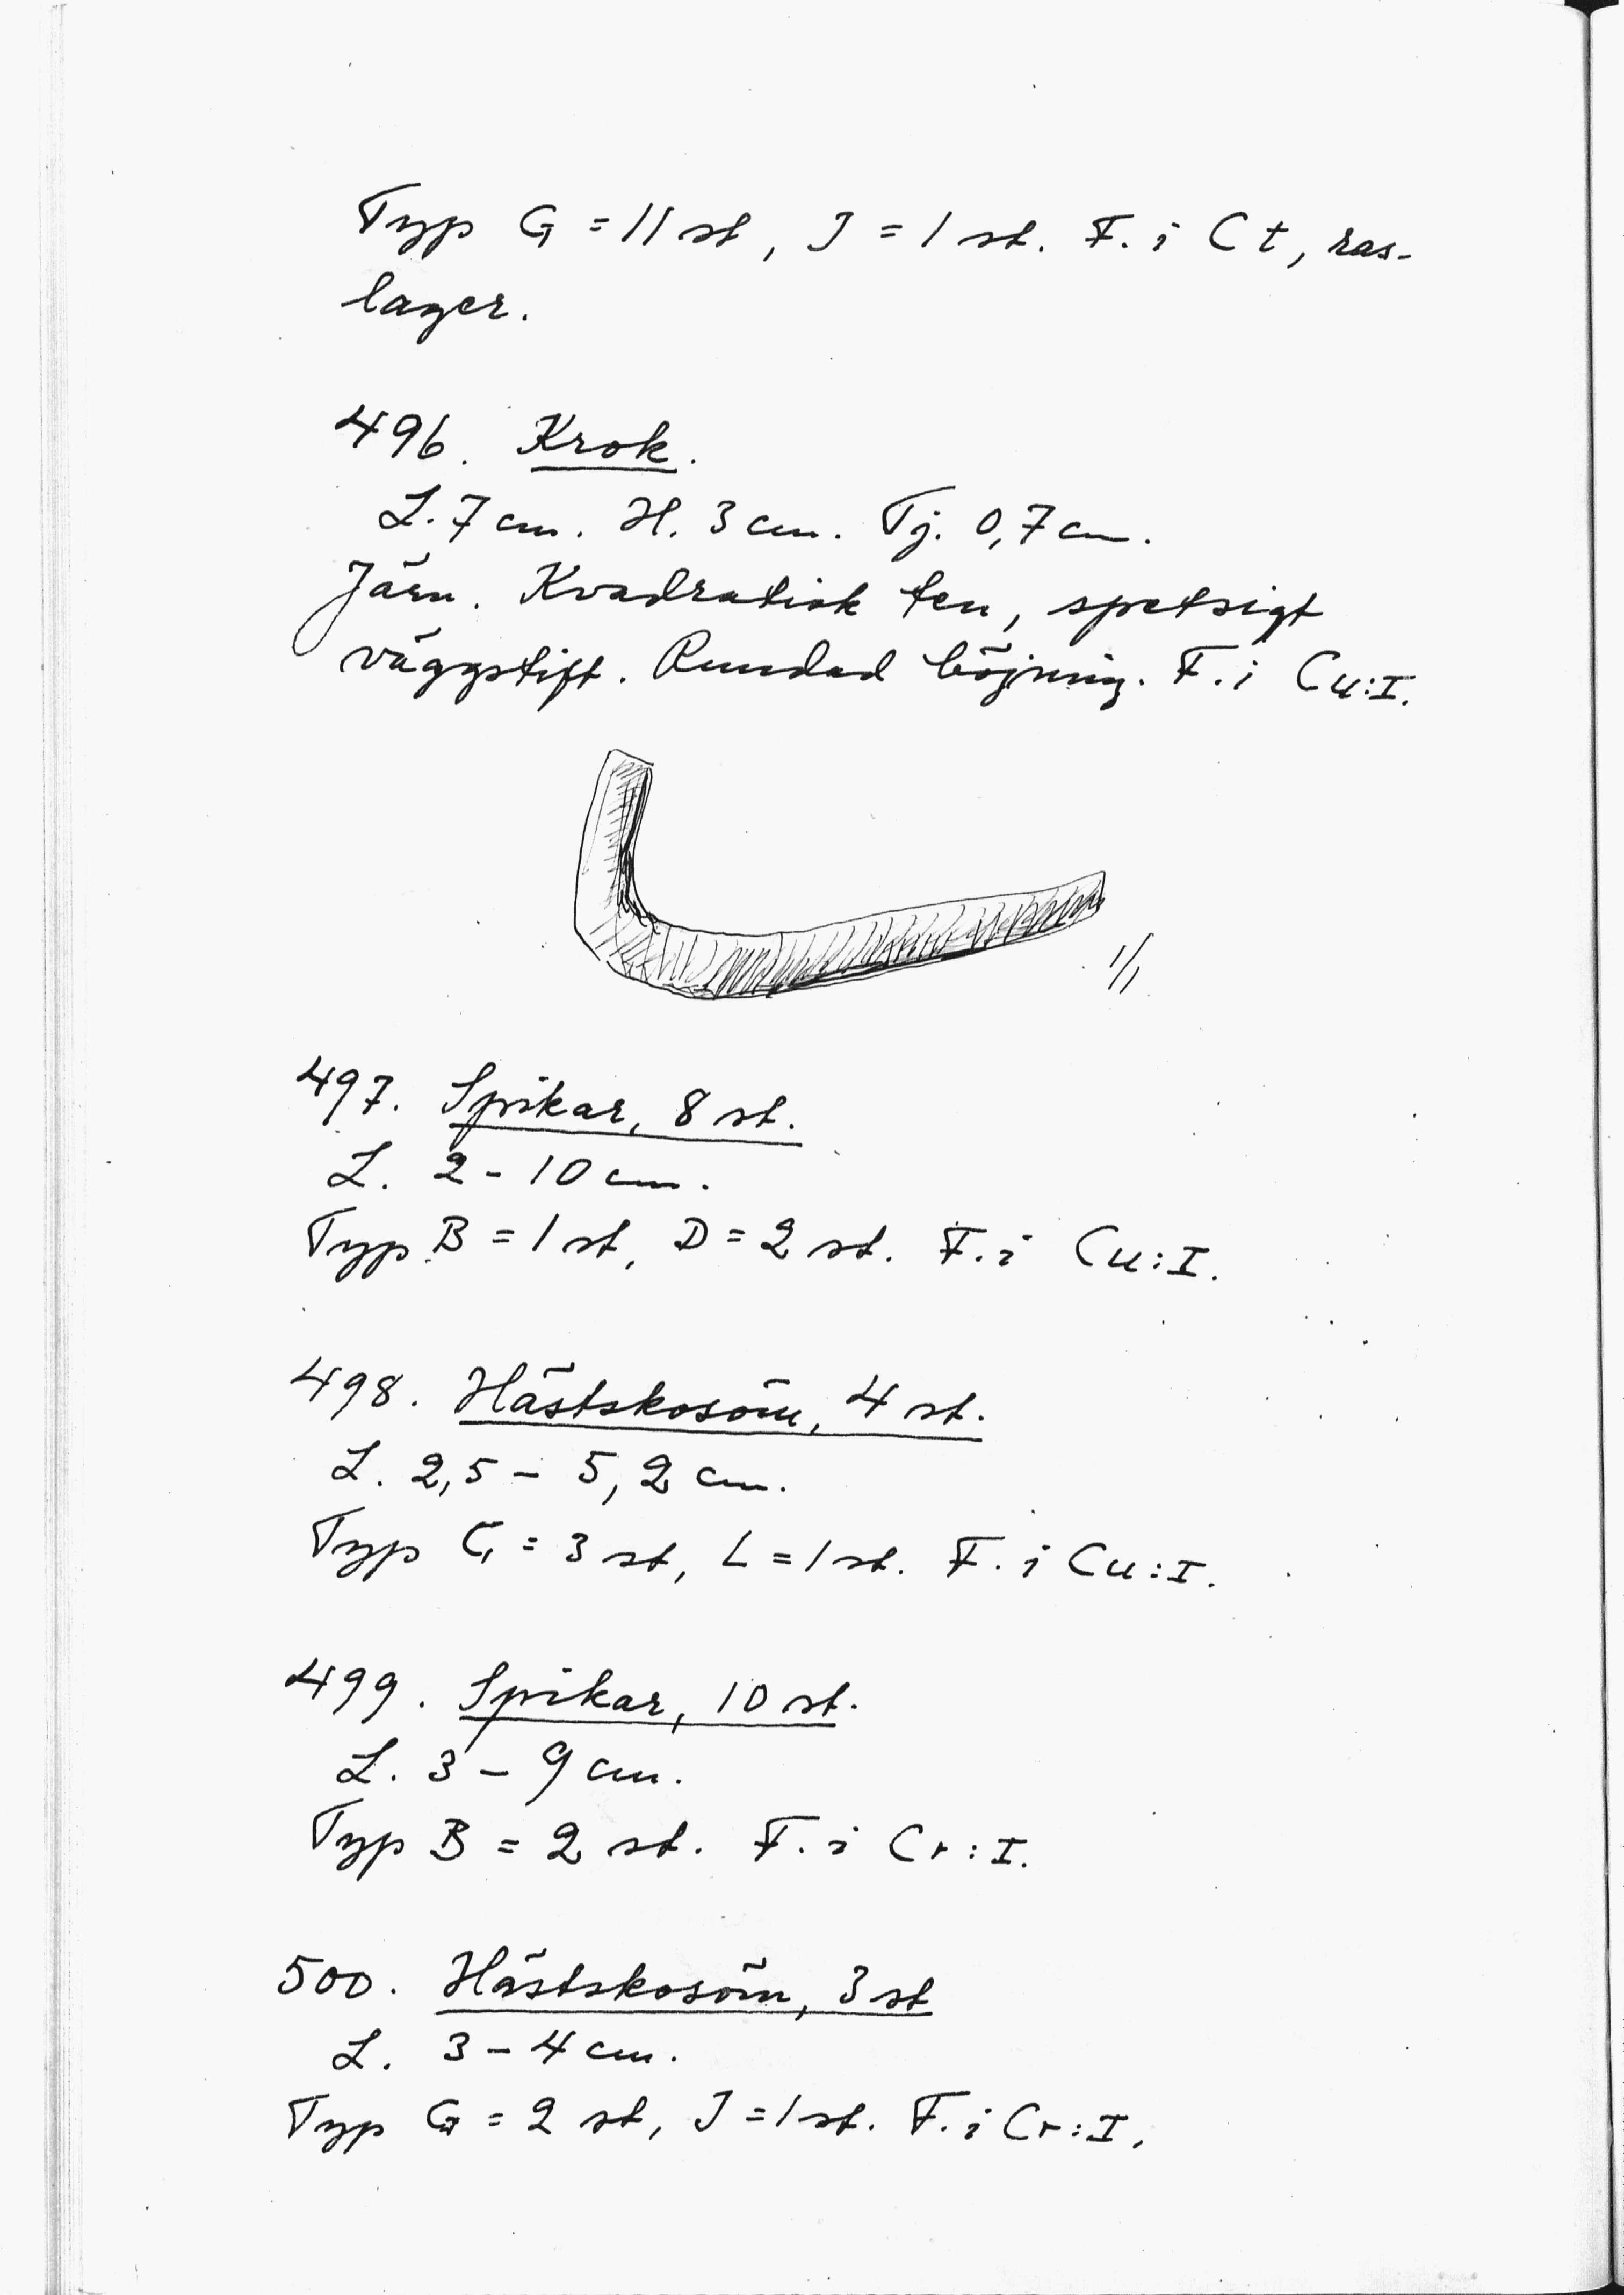 Typ G = 11 st, J = 1 st. F. i Ct, ras-
lager.
496. Krok.
L. 7 cm. H. 3 cm. Tj. 0,7 cm.
Järn. Kvadratisk ten, spetsigt
väggstift. Rundad böjning. F. i Cu:I.
1/1
497. Spikar, 8 st.
L. 2 - 10 cm.
Typ B = 1 st, D = 2 st. F. i Cu:I.
498. Hästskosöm, 4 st.
L. 2,5 - 5,2 cm.
Typ G = 3 st, L = 1 st. F. i Cu:I.
499. Spikar, 10 st.
L. 3 - 9 cm.
Typ B = 2 st. F. i Cr:I.
500. Hästskosöm, 3 st
L. 3 - 4 cm.
Typ G = 2 st, J = 1 st. F. i Cr:I.